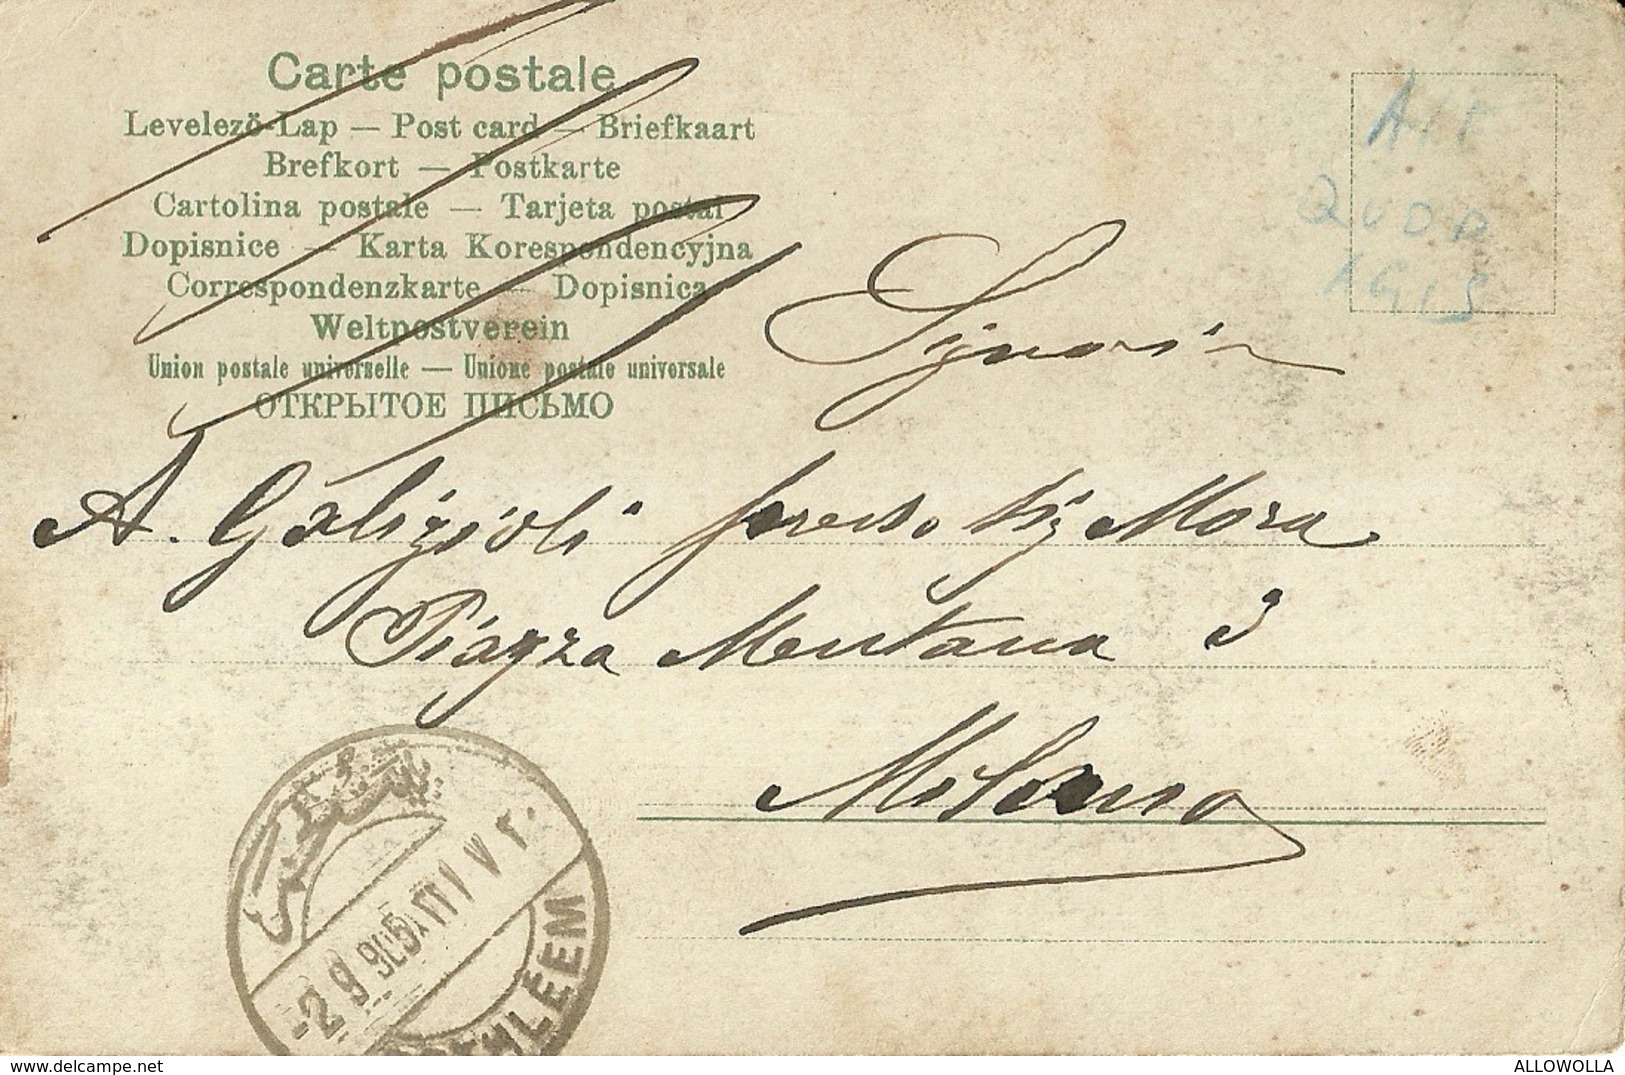 Carte postale
Levelező-Lap — Post card — Briefkaart
Brefkort — Postkarte
Cartolina postale — Tarjeta postal
Dopisnice — Karta Korespondencyjna
Correspondenzkarte — Dopisnica
Weltpostverein
Union postale universelle — Unione postale universale
ОТКРЫТОЕ ПИСЬМО
A. Galizioli presso Sig Mora
Piazza Mentana 3
Milano
-2 9 905
https://www.delcampe.net
ALLOWOLLA